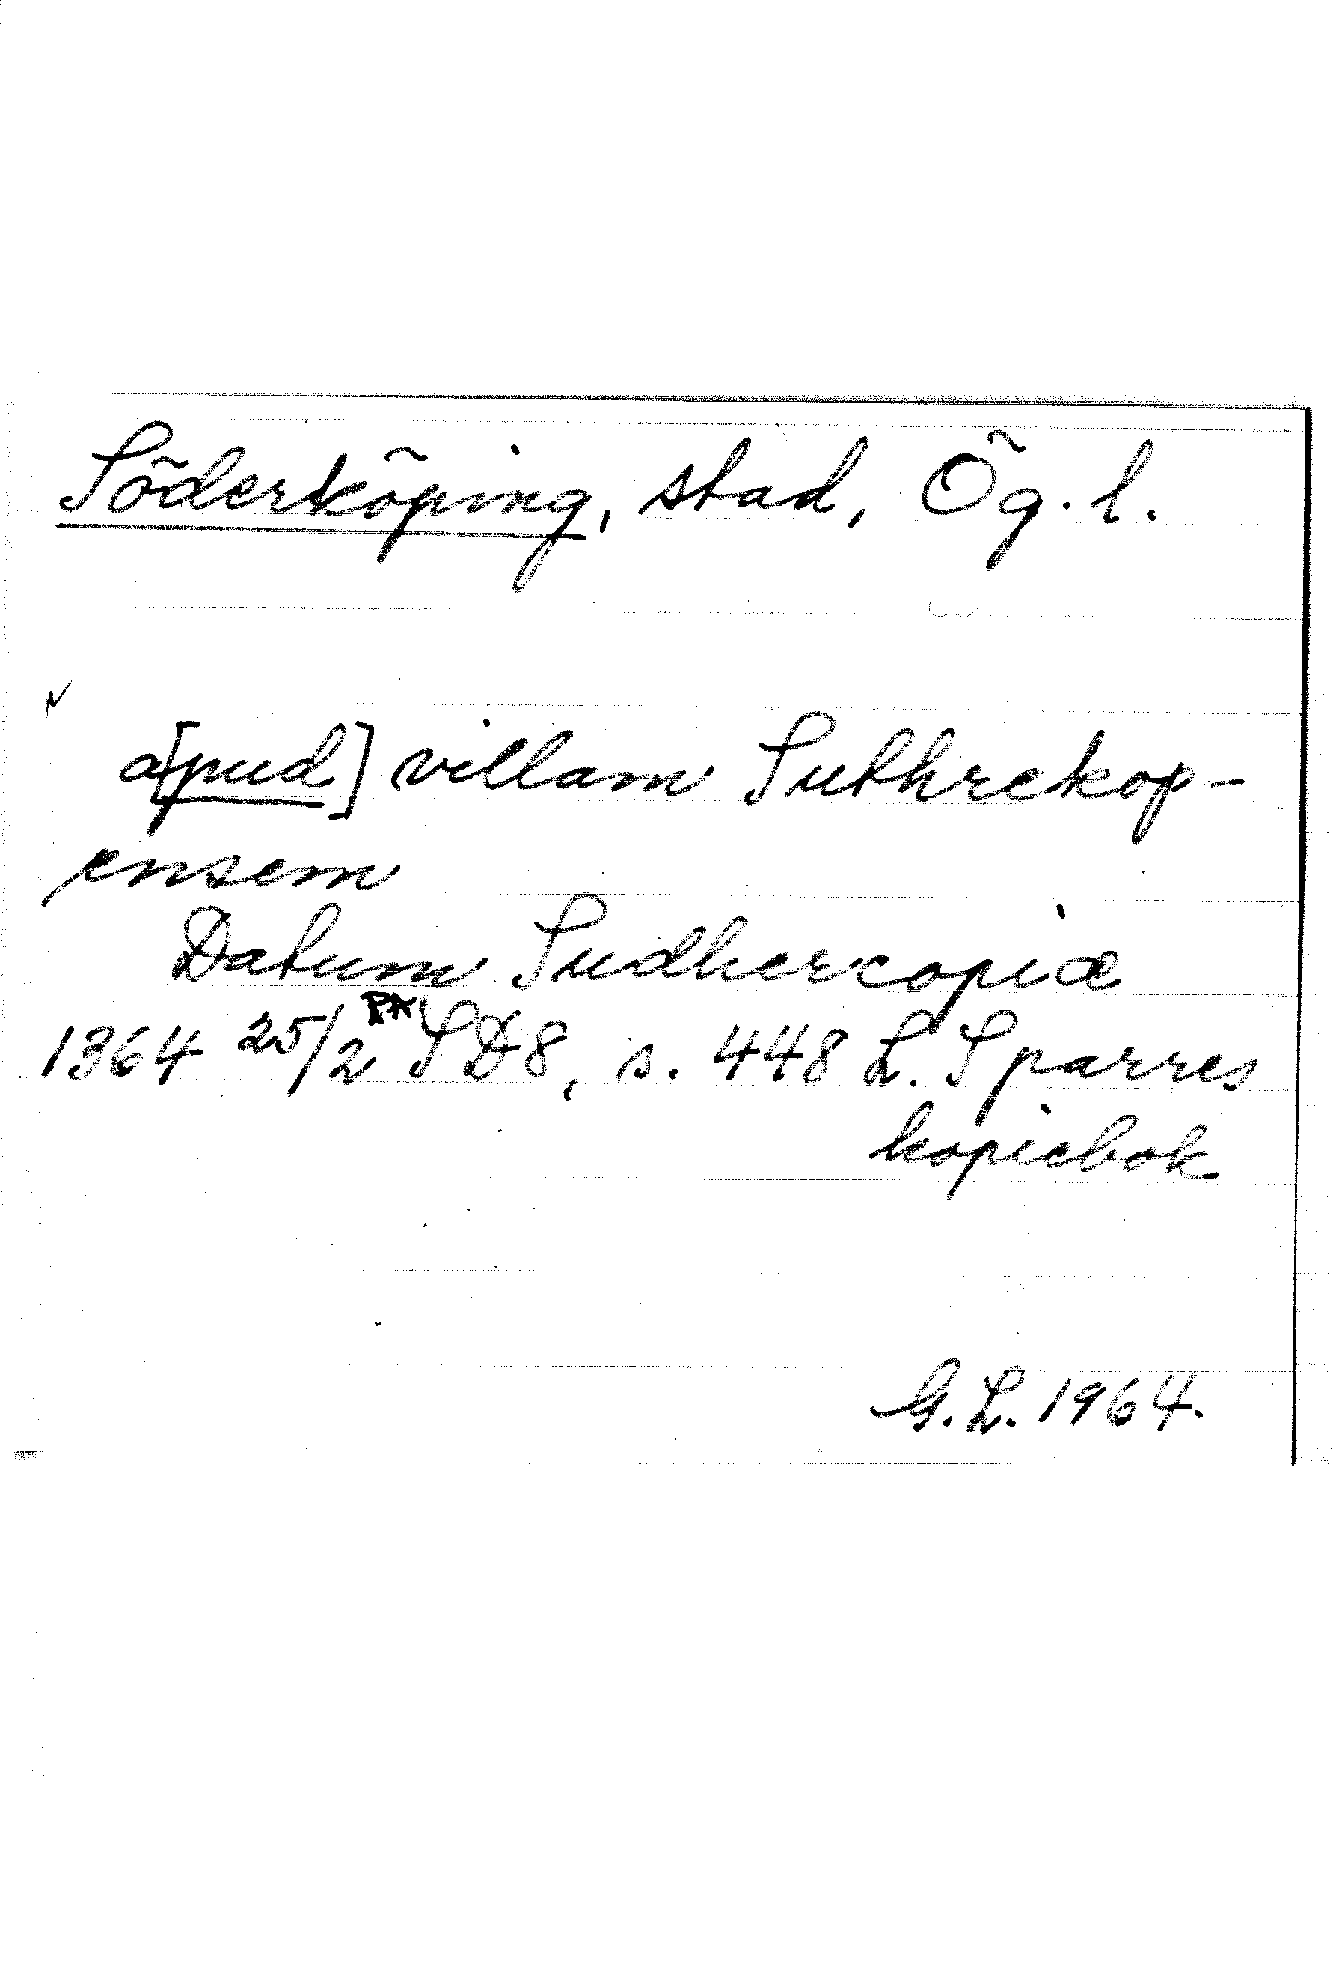 Söderköping, stad, Ög. l.
a[pud] villam Suthrekop-
ensem
Datum Sudhercopiæ
1364 25/2 PA SD8, s. 448 L. Sparres
kopiebok
G. L. 1964.